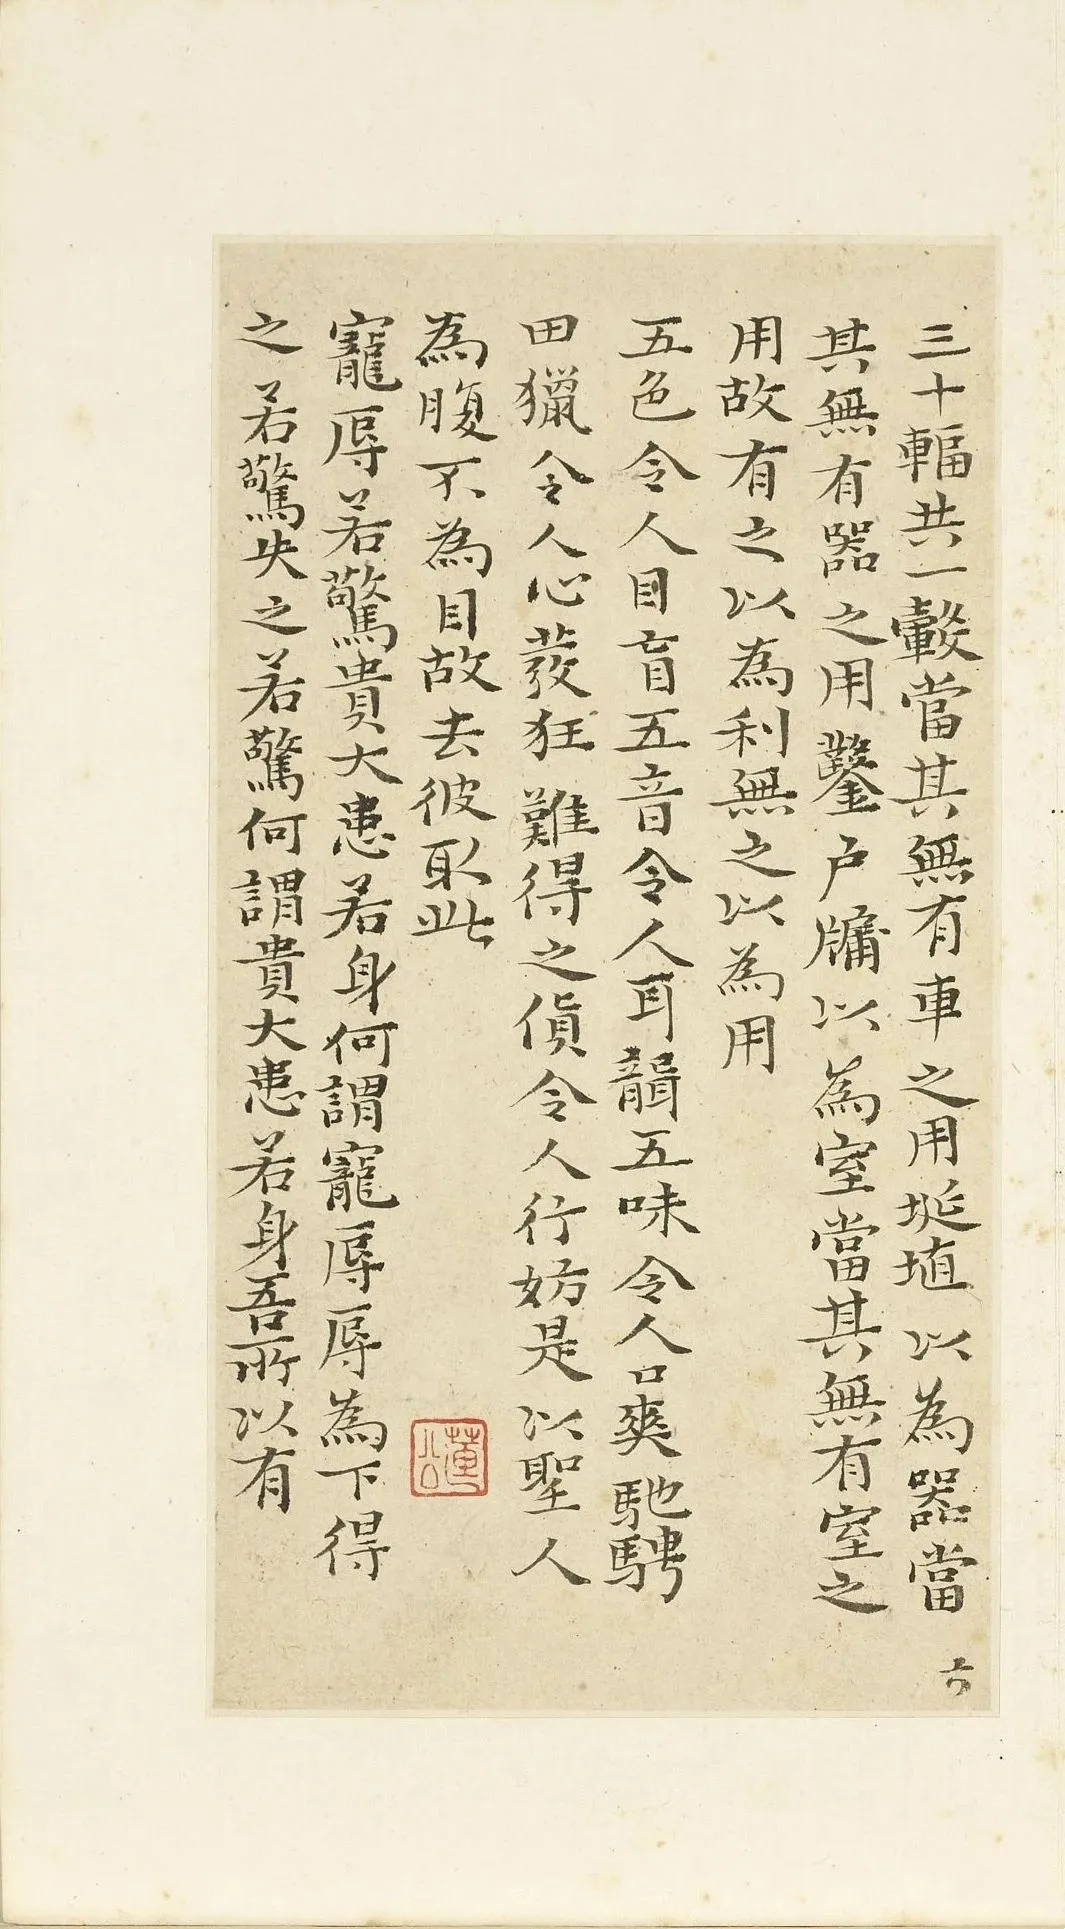 三十輻共一轂當其無有車之用埏埴以為器當
其無有器之用鑿戶牖以為室當其無有室之
用故有之以為利無之以為用
五色令人目盲五音令人耳聾五味令人口爽馳騁
田獵令人心發狂難得之貨令人行妨是以聖人
為腹不為目故去彼取此
寵辱若驚貴大患若身何謂寵辱辱為下得
之若驚失之若驚何謂貴大患若身吾所以有